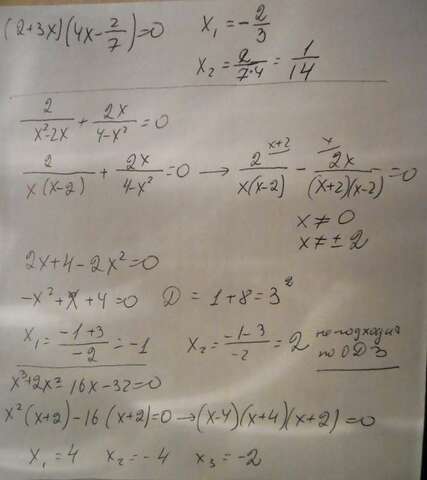 (2+3x)(4x-2/7)=0 x₁=-2/3
x₂=2/7·4=1/14
2/x²-2x + 2x/4-x² =0
2/x(x-2) + 2x/4-x² =0 → 2 x+2/x(x-2) - 2x x/(x+2)(x-2) =0
x≠0
x≠±2
2x+4-2x²=0
-x²+x+4=0 D=1+8=3²
x₁=-1+3/-2=-1 x₂=-1-3/-2=2 не подходит
по ОДЗ
x³+2x²-16x-32=0
x²(x+2)-16(x+2)=0→(x-4)(x+4)(x+2)=0
x₁=4 x₂=-4 x₃=-2